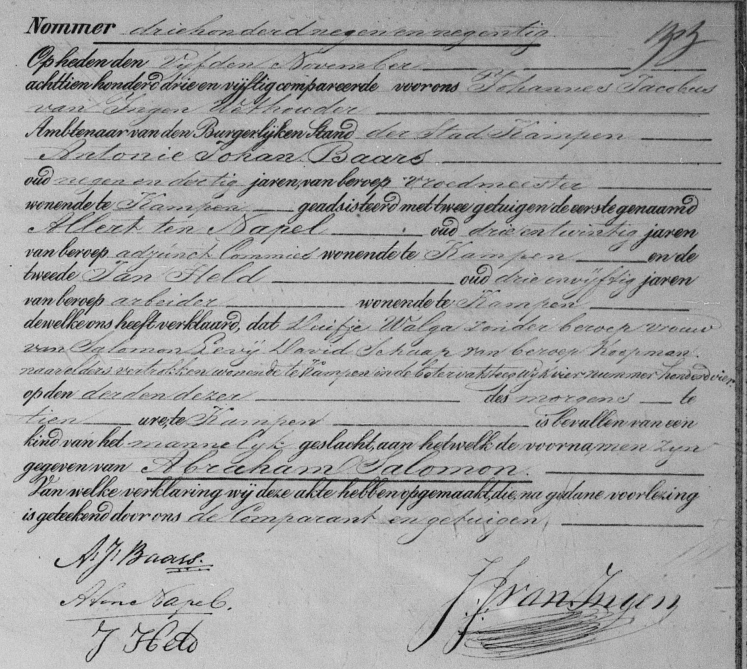 Nommer driehonderd negen en negentig
Op heden den Vijfden November
achttien honderd drie en vijftig compareerde voor ons Johannes Jacobus
van Ingen Wethouder
Ambtenaar van den Burgerlijken Stand der Stad Kampen
Antonie Johan Baars
oud negen en dertig jaren, van beroep vroedmeester
wonende te Kampen geadsisteerd met twee getuigen de eerste genaamd
Albert ten Napel oud drie en twintig jaren
van beroep adjunct Commies wonende te Kampen en de
tweede Jan Held oud drie en vijftig jaren
van beroep arbeider wonende te Kampen
dewelke ons heeft verklaard, dat Duifje Walga zonder beroep vrouw
van Salomon Levij David Schaap van beroep Koopman.
naar elders vertrokken wonende te Kampen in de boter van wijk vier nummer honderd vier
op den derden dezer des morgens te
tien ure, te Kampen is bevallen van een
kind van het mannelyk geslacht, aan hetwelk de voornamen zyn
gegeven van Abraham Salomon.
Van welke verklaring wij deze akte hebben opgemaakt, die, na gedane voorlezing
is geteekend door ons de Comparant en getuigen,
A.J. Baars.
A ten Napel.
J Held
J.J. van Ingen